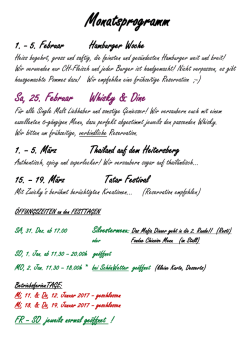 Monatsprogramm
1. – 5. Februar Hamburger Woche
Heiss begehrt, gross und saftig, die feinsten und gesündesten Hamburger weit und breit!
Wir verwenden nur CH-Fleisch und jeder Burger ist handgemacht! Nicht verpassen, es gibt
hausgemachte Pommes dazu! Wir empfehlen eine frühzeitige Reservation ;-)
Sa, 25. Februar Whisky & Dine
Für alle Single Malt Liebhaber und sonstige Geniesser! Wir verzaubern euch mit einem
exzellenten 6-gängigen Menu, dazu perfekt abgestimmt jeweils den passenden Whisky.
Wir bitten um frühzeitige, verbindliche Reservation.
1. – 5. März Thailand auf dem Heitersberg
Authentisch, spicy und superlecker! Wir verzaubern sogar auf thailändisch...
15. – 19. März Tatar Festival
Mit Zwicky's berühmt berüchtigten Kreationen... (Reservation empfohlen)
ÖFFNUNGSZEITEN an den FESTTAGEN
SA, 31. Dez. ab 11.00 Silvestermenu: Das Mafia Dinner geht in die 2. Runde!! (Resti)
oder Fondue Chinoise Menu (im Stall)
SO, 1. Jan. ab 11.30 – 20.00h geöffnet
MO, 2. Jan. 11.30 – 18.00h * bei SchönWetter geöffnet (Kleine Karte, Desserts)
BetriebsferienTAGE:
Mi, 11. & Do, 12. Januar 2017 – geschlossen
Mi, 18. & Do, 19. Januar 2017 – geschlossen
FR – SO jeweils normal geöffnet !